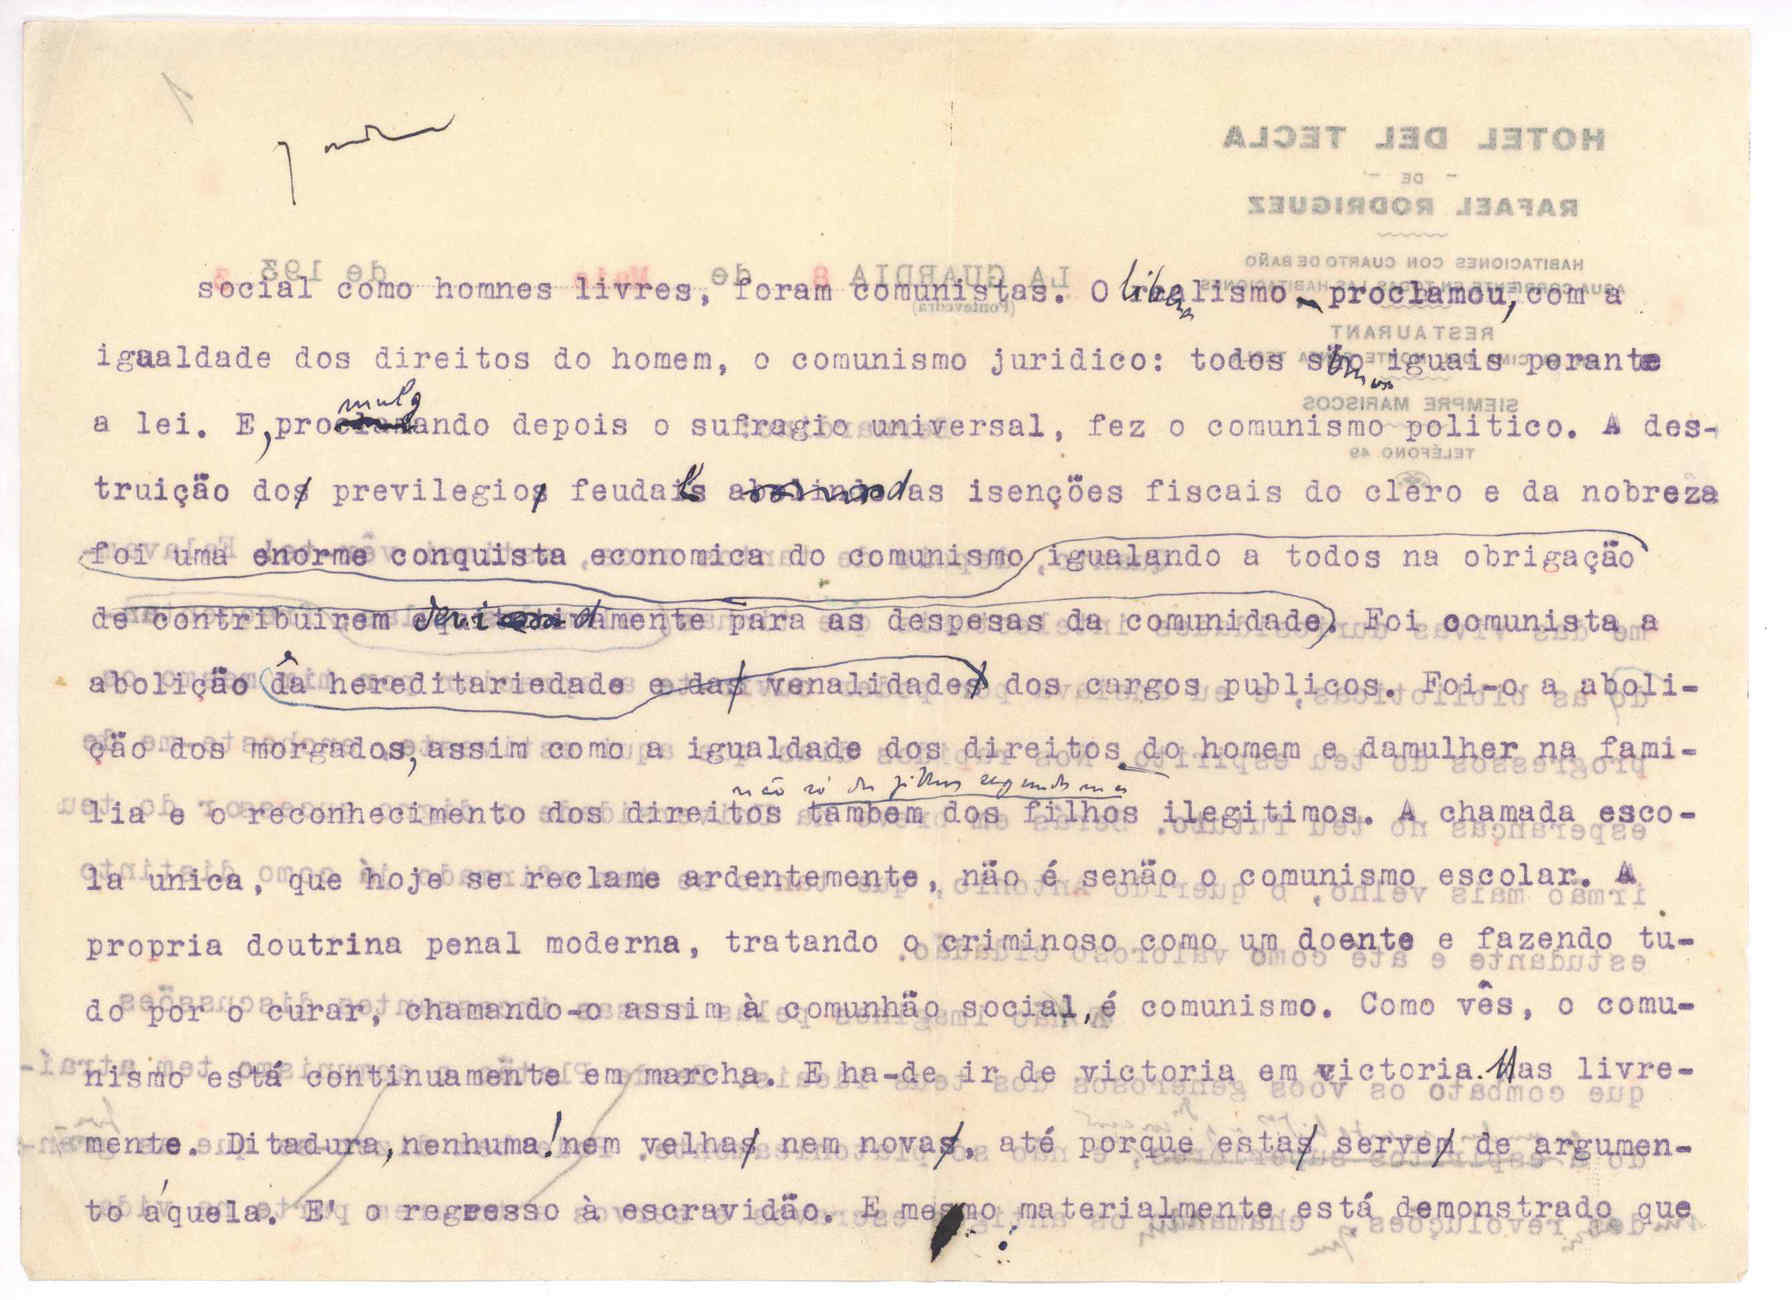 HOTEL DEL TECLA
DE
RAFAEL RODRIGUEZ
HABITACIONES CON CUARTO DE BAÑO
RESTAURANT
SIEMPRE MARISCOS
TELÉFONO 49
LA GUARDIA 8 de Maio de 193
(Pontevedra)
social como homnes livres, foram comunistas. O liberalismo proclamou, com a
igualdade dos direitos do homem, o comunismo juridico: todos somos iguais perante
a lei. E, promulgando depois o sufragio universal, fez o comunismo politico. A des-
truição do previlegio feudal das isenções fiscais do clero e da nobreza
foi uma enorme conquista economica do comunismo igualando a todos na obrigação
de contribuirem para as despesas da comunidade. Foi comunista a
abolição da hereditariedade e da venalidade dos cargos publicos. Foi-o a aboli-
ção dos morgados, assim como a igualdade dos direitos do homem e damulher na fami-
não só dos filhos segundos mas
lia e o reconhecimento dos direitos tambem dos filhos ilegitimos. A chamada esco-
la unica, que hoje se reclame ardentemente, não é senão o comunismo escolar. A
propria doutrina penal moderna, tratando o criminoso como um doente e fazendo tu-
do por o curar, chamando-o assim à comunhão social, é comunismo. Como vês, o comu-
nismo está continuamente em marcha. E ha-de ir de victoria em victoria. Mas livre-
mente. Ditadura, nenhuma! nem velha nem nova, até porque esta serve de argumen-
to áquela. E' o regresso à escravidão. E mesmo materialmente está demonstrado que